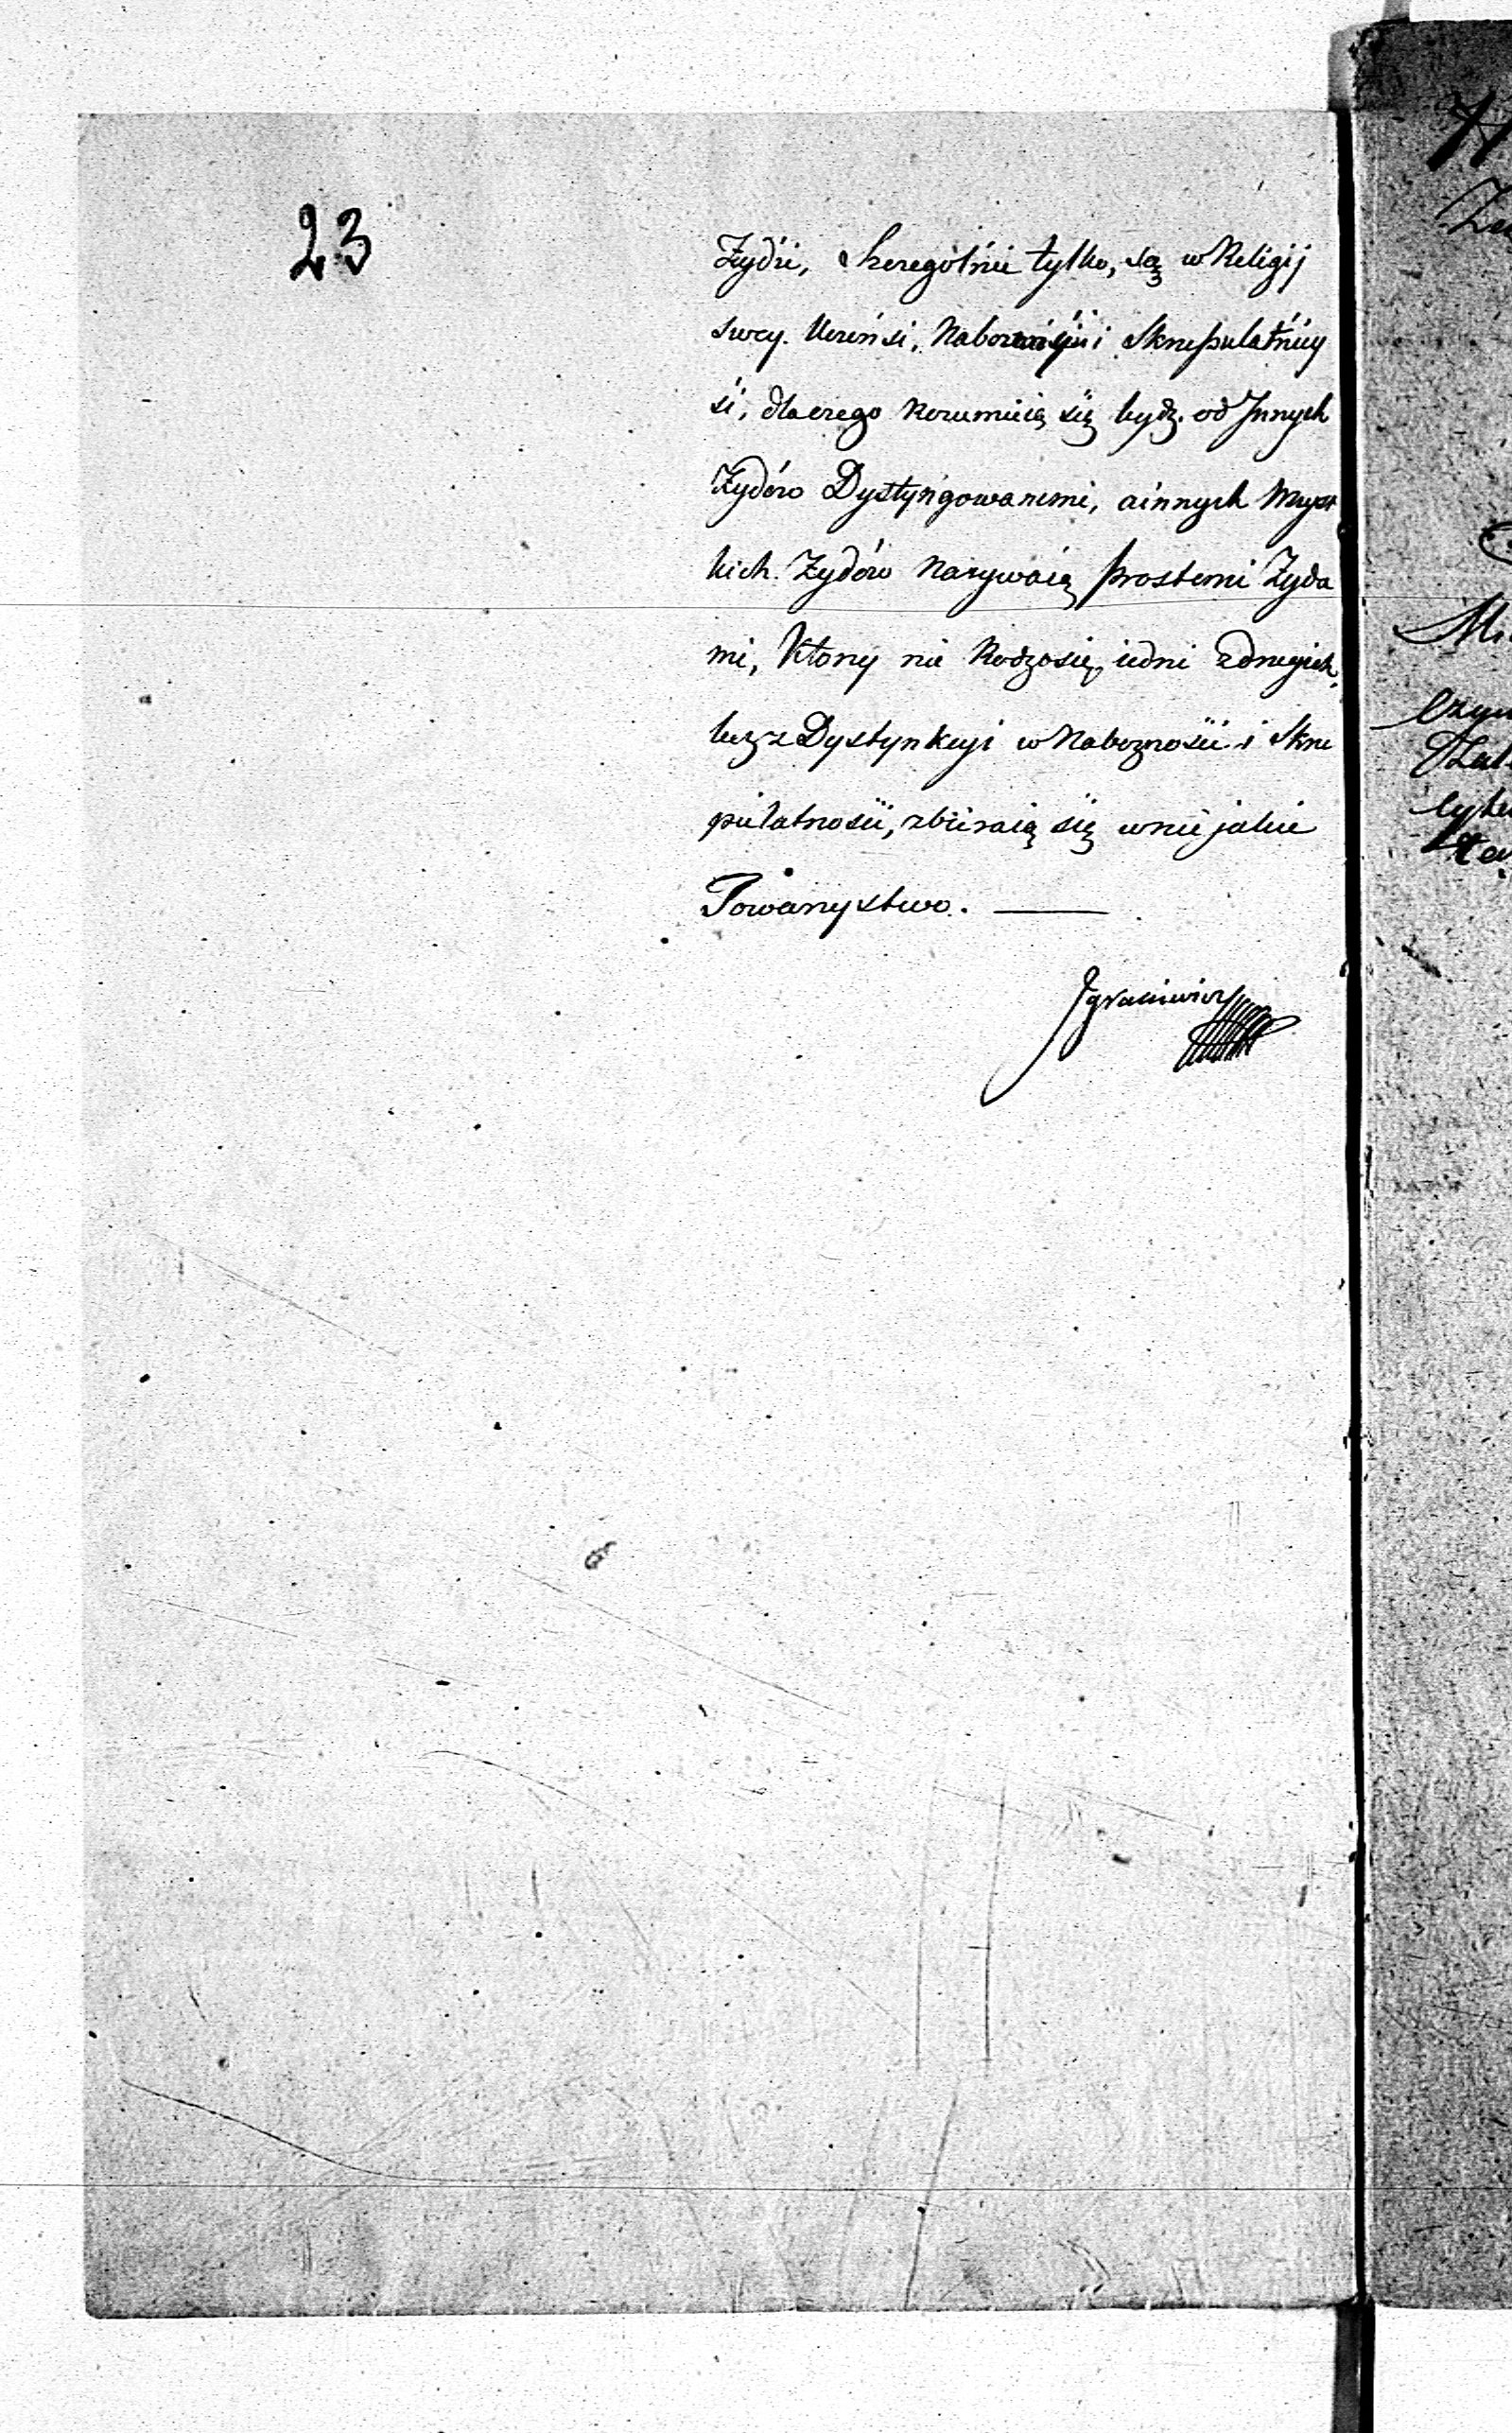 23
Żydźi, Szczegolnie tylko, są w Religij
swey. Uczeńsi, i Skrupulatniey
si, dlaczego Rozumieią się bydź. od Jnnych
Żydów Dystyngowanemi, a innych wszyst
kich. Żydów nazywaią prostemi Żyda
mi, Którzy nie Rodzosię, iedni zdrugich,
lecz z Dystynkcyi w Nabożnośći i Skru
pulatnośći, zbieraią się w nie jakie
Towarzystwo. —